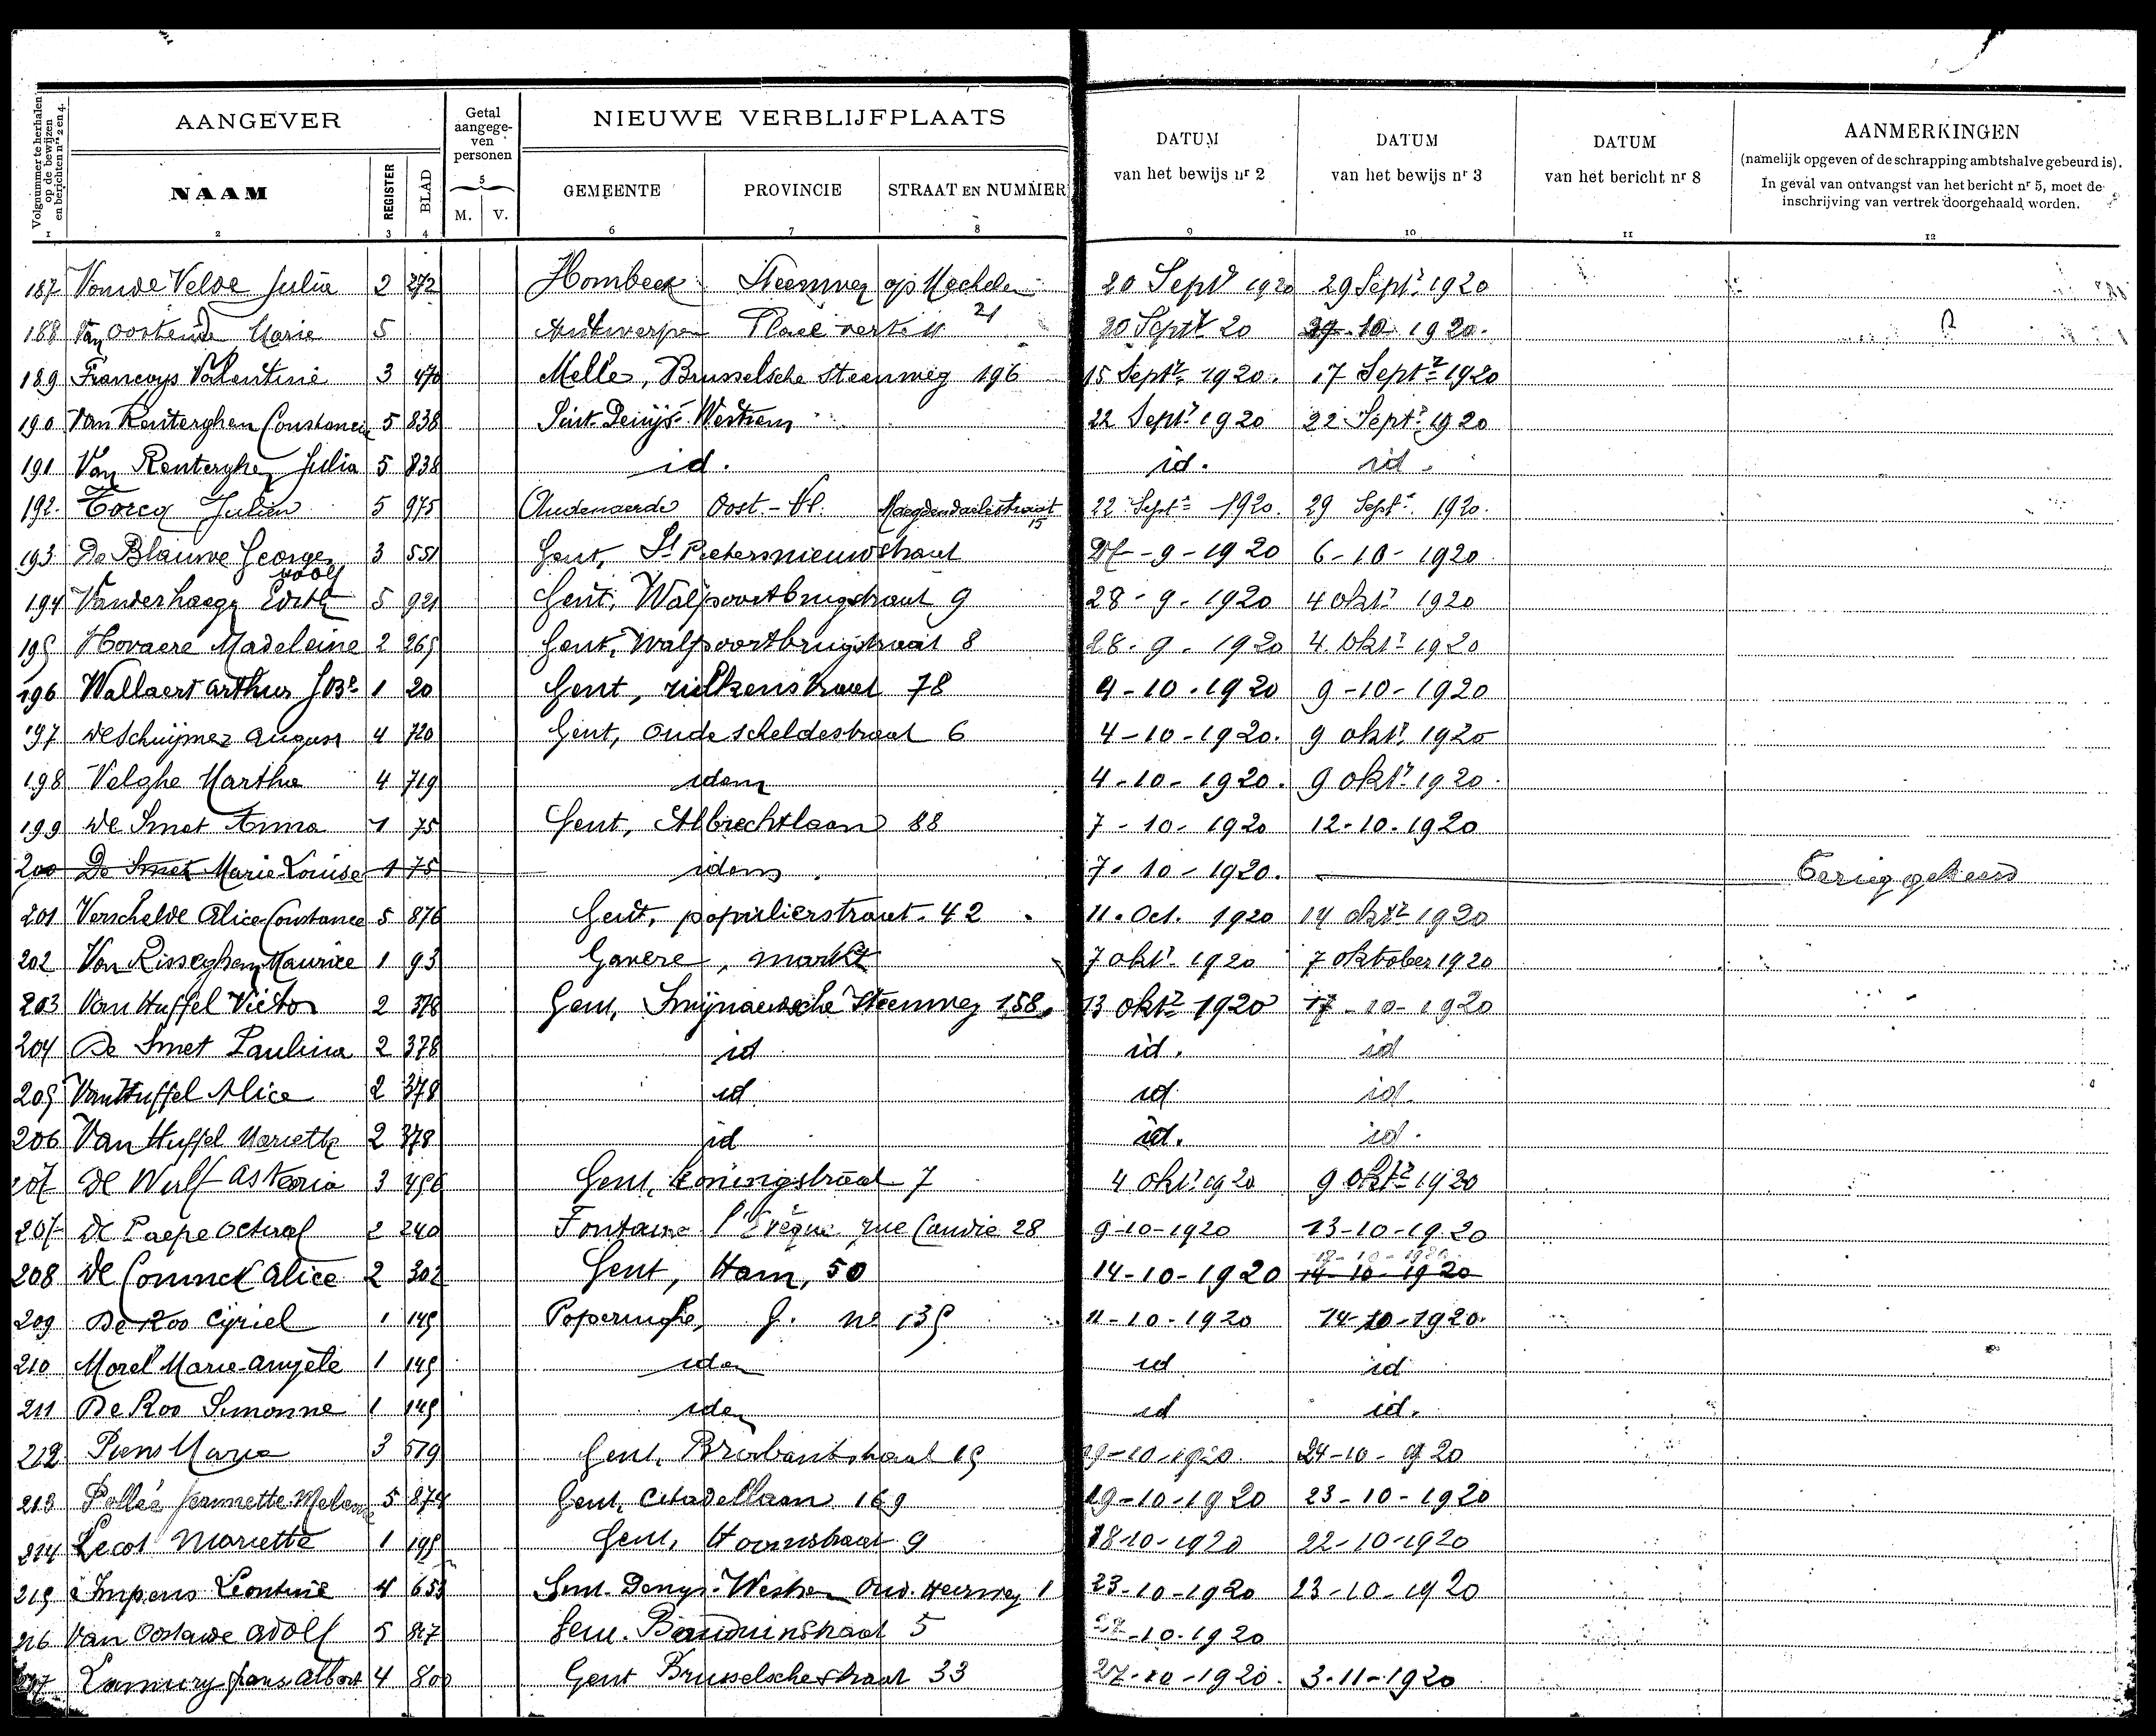 Volgnummer te herhalen op de bewijzen en berichten nrs 2 en 4.
AANGEVER
Getal aangegeven personen
NIEUWE VERBLIJFPLAATS
DATUM van het bewijs nr 2
DATUM van het bewijs nr 3
DATUM van het bericht nr 8
AANMERKINGEN
(namelijk opgeven of de schrapping ambtshalve gebeurd is).
In geval van ontvangst van het bericht nr 5, moet de
inschrijving van vertrek doorgehaald worden.
NAAM REGISTER BLAD M. V. GEMEENTE PROVINCIE STRAAT EN NUMMER
1 2 3 4 5 6 7 8 9 10 11 12
187 Vande Velde Julia 2 272 Hombeek Steenweg op Mechelen 20 Sept 1920 29 Sept 1920
188 Van Oostende Marie 5 Antwerpen Place verte 21 20 Sept 20 10 1920.
189 Francoys Valentine 3 470 Melle, Brusselsche Steenweg 196 15 Sept 1920. 17 Sept 1920
190 Van Renterghem Constancia 5 838 Sint Denijs Westrem 22 Sept 1920 22 Sept 1920
191 Van Renterghem Julia 5 838 id. id. id.
192. Torcq Julien 5 975 Audenaerde Oost-Vl. Maegdendaelestraat 15 22 Sept 1920. 29 Sept 1920.
193 De Blauwe George 3 551 Gent, St Pietersnieuwstraat 27-9-1920 6-10-1920
194 Vanderhaegen Edith 5 921 Gent, Walpoortbrugstraat 9 28-9-1920 4 okt 1920
195 Hovaere Madeleine 2 265 Gent, Walpoortbrugstraat 8 28-9-1920 4 okt 1920
196 Wallaert Arthur 1 20 Gent, 78 9-10-1920 9-10-1920
197 De Schuijmer August 4 720 Gent, Oude Scheldestraat 6 4-10-1920. 9 okt 1920
198 Velghe Martha 4 719 idem 4-10-1920. 9 okt 1920.
199 De Smet Anna 1 75 Gent, Albrechtlaan 88 7-10-1920 12-10-1920
200 De Smet Marie Louise 1 75 idem 7-10-1920. Terug gekeerd
201 Verschelde Alice Constance 5 876 Gent, populierstraat. 42 11. Oct. 1920 14 okt 1920
202 Van Risseghem Maurice 1 93 Gavere, markt 7 okt 1920 7 oktober 1920
203 Van Huffel Victor 2 378 Gent, Smijnaerdsche Steenweg 158 13 okt 1920 17-10-1920
204 De Smet Paulina 2 378 id id. id
205 Van Huffel Alice 2 378 id id id.
206 Van Huffel Mariette 2 378 id id. id.
207 De Wulf Asteria 3 456 Gent, Koningstraat 7 4 okt 1920 9 okt 1920
207 De Paepe Octaaf 2 240 Fontaine l'Evêque rue Candie 28 9-10-1920 13-10-1920
208 De Coninck Alice 2 302 Gent, Ham, 50 14-10-1920 14-10-1920
209 De Roo Cyriel 1 145 Poperinghe, G. no 135 11-10-1920 14-10-1920.
210 Morel Marie-Angèle 1 145 idem id id
211 De Roo Simonne 1 145 idem id id.
212 Piens Maria 3 519 Gent, Brabantstraat 15 19-10-1920. 24-10-1920
213 Pollée Jeannette 5 874 Gent, Citadellaan 169 19-10-1920 23-10-1920
214 Lecot Mariette 1 195 Gent, Hoornstraat 9 18-10-1920 22-10-1920
215 Impens Leontine 4 653 Sint-Denys-Westrem Oud. Heerweg 1 23-10-1920 23-10-1920
216 Van Oostende Adolf 5 Gent. Boudewinstraat 5 -10-1920
217 Frans Albert 4 800 Gent Brusselschestraat 33 27-10-1920. 3-11-1920